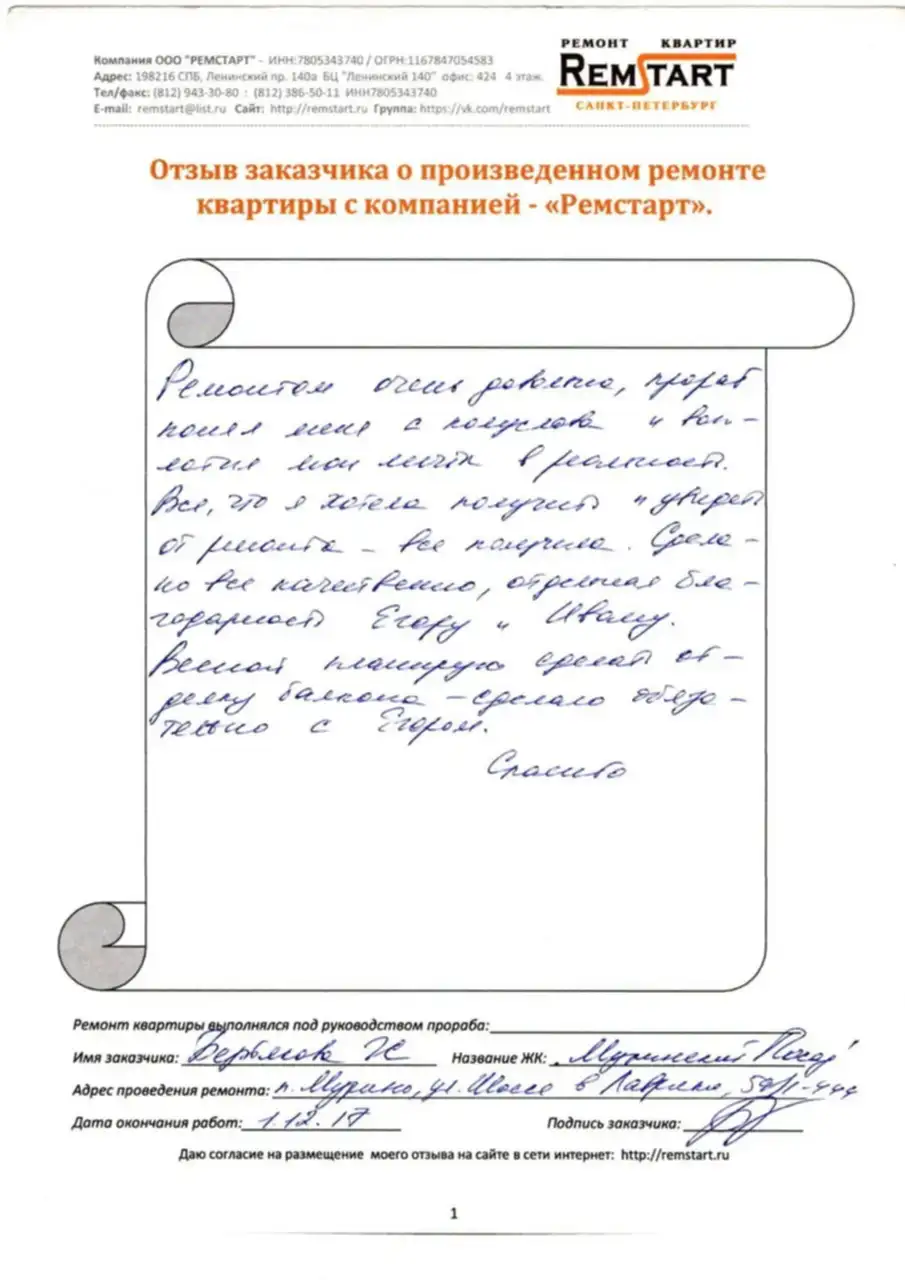 Компания ООО "РЕМСТАРТ" - ИНН:7805343740 / ОГРН:1167847054583
Адрес: 198216 СПБ, Ленинский пр. 140а БЦ "Ленинский 140" офис: 424 4 этаж.
Тел/факс: (812) 943-30-80 : (812) 386-50-11 ИНН7805343740
E-mail: remstart@list.ru Сайт: http://remstart.ru Группа: https://vk.com/remstart
РЕМОНТ КВАРТИР
REMSTART
САНКТ-ПЕТЕРБУРГ
Отзыв заказчика о произведенном ремонте
квартиры с компанией - «Ремстарт».
Ремонтом очень довольна, прораб
понял меня с полуслова и воп-
лотил мои мечты в реальность.
Все, что я хотела получить и увидеть
от ремонта - все получила. Сдела-
но все качественно, отдельная бла-
годарность Егору и Ивану.
Весной планирую сделать от-
делку балкона - сделаю обяза-
тельно с Егором.
Спасибо
Ремонт квартиры выполнялся под руководством прораба:
Имя заказчика: Ж Название ЖК: Муринский Посад
Адрес проведения ремонта: п. Мурино, ул. Шоссе в Лаврики,
Дата окончания работ: 1.12.17 Подпись заказчика:
Даю согласие на размещение моего отзыва на сайте в сети интернет: http://remstart.ru
1